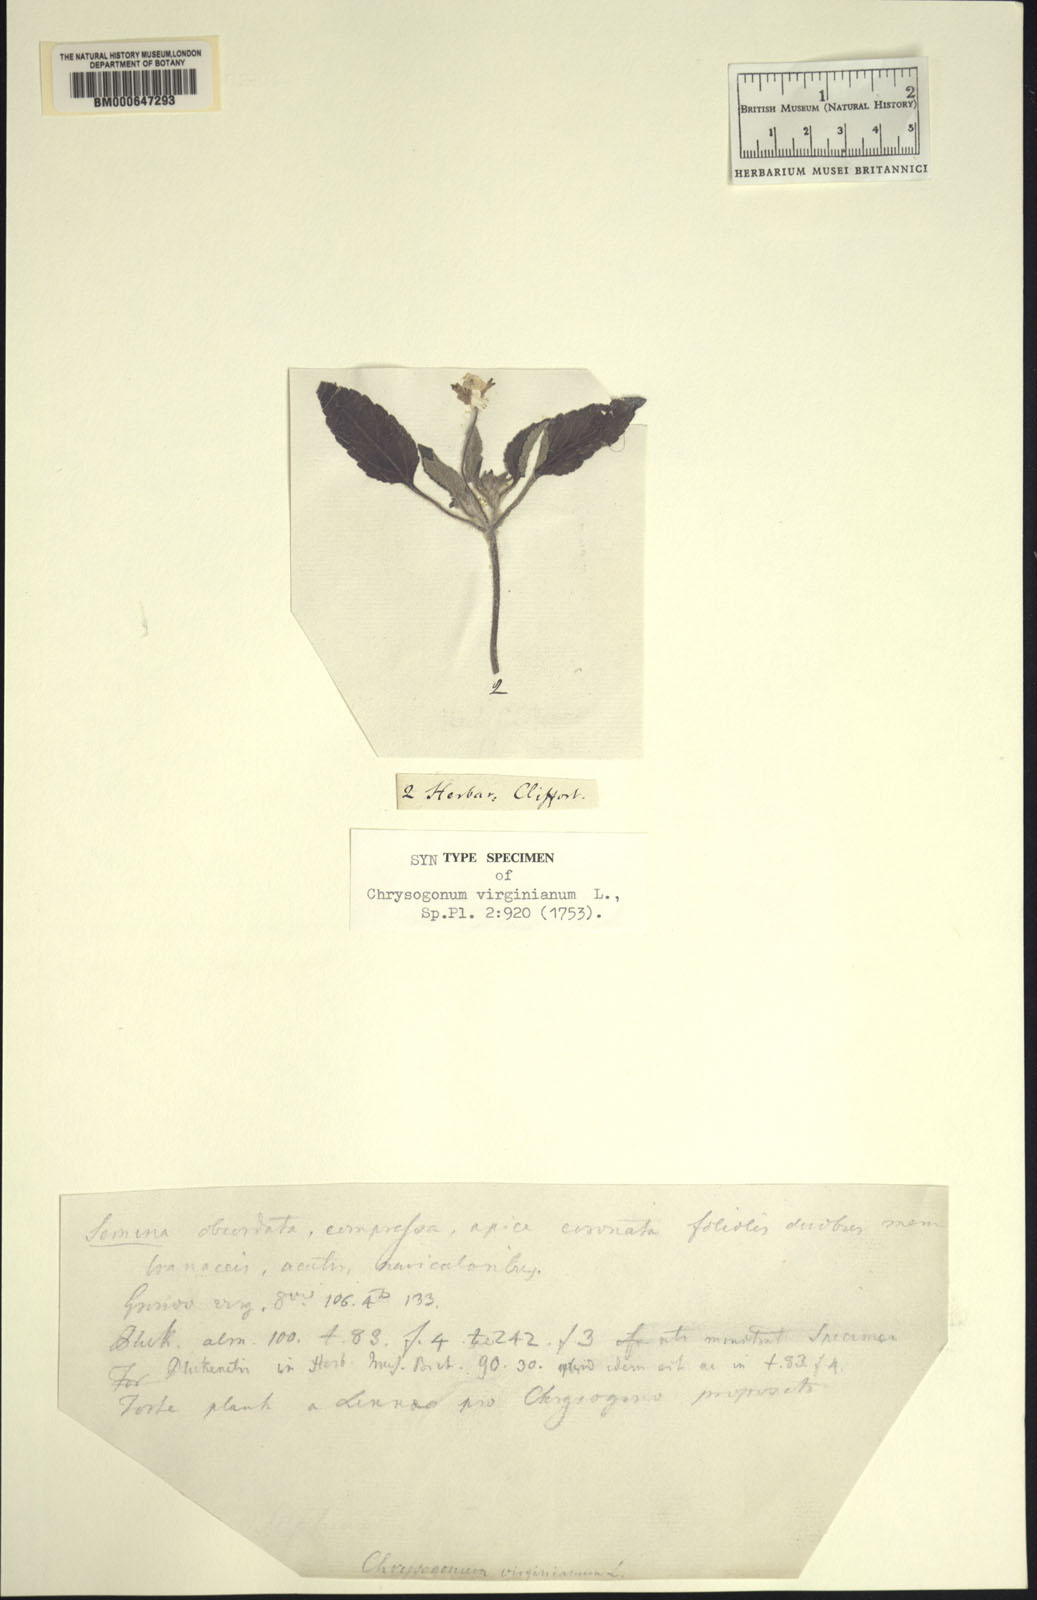 THE NATURAL HISTORY MUSEUM, LONDON
DEPARTMENT OF BOTANY
BM000647293
1 2
BRITISH MUSEUM (NATURAL HISTORY)
1 2 3 4 5
HERBARIUM MUSEI BRITANNICI
2
2 Herbar: Cliffort.
SYN TYPE SPECIMEN
of
Chrysogonum virginianum L.,
Sp.Pl. 2:920 (1753).
Semina obcordata, compressa, apice coronata foliolis duobus mem
branaceis, acutis, navicularibus.
Gronov virg. 8vo 106. 4to 133.
Pluk. alm. 100. t.83. f.4 242. f3 monstrat Specimen
Plukenetii in Herb. Mus. Brit. 90. 30. idem est ac in t.83 f4.
Forte planta a Linnaeo pro Chrysogono proposita
Chrysogonum virginianum L.